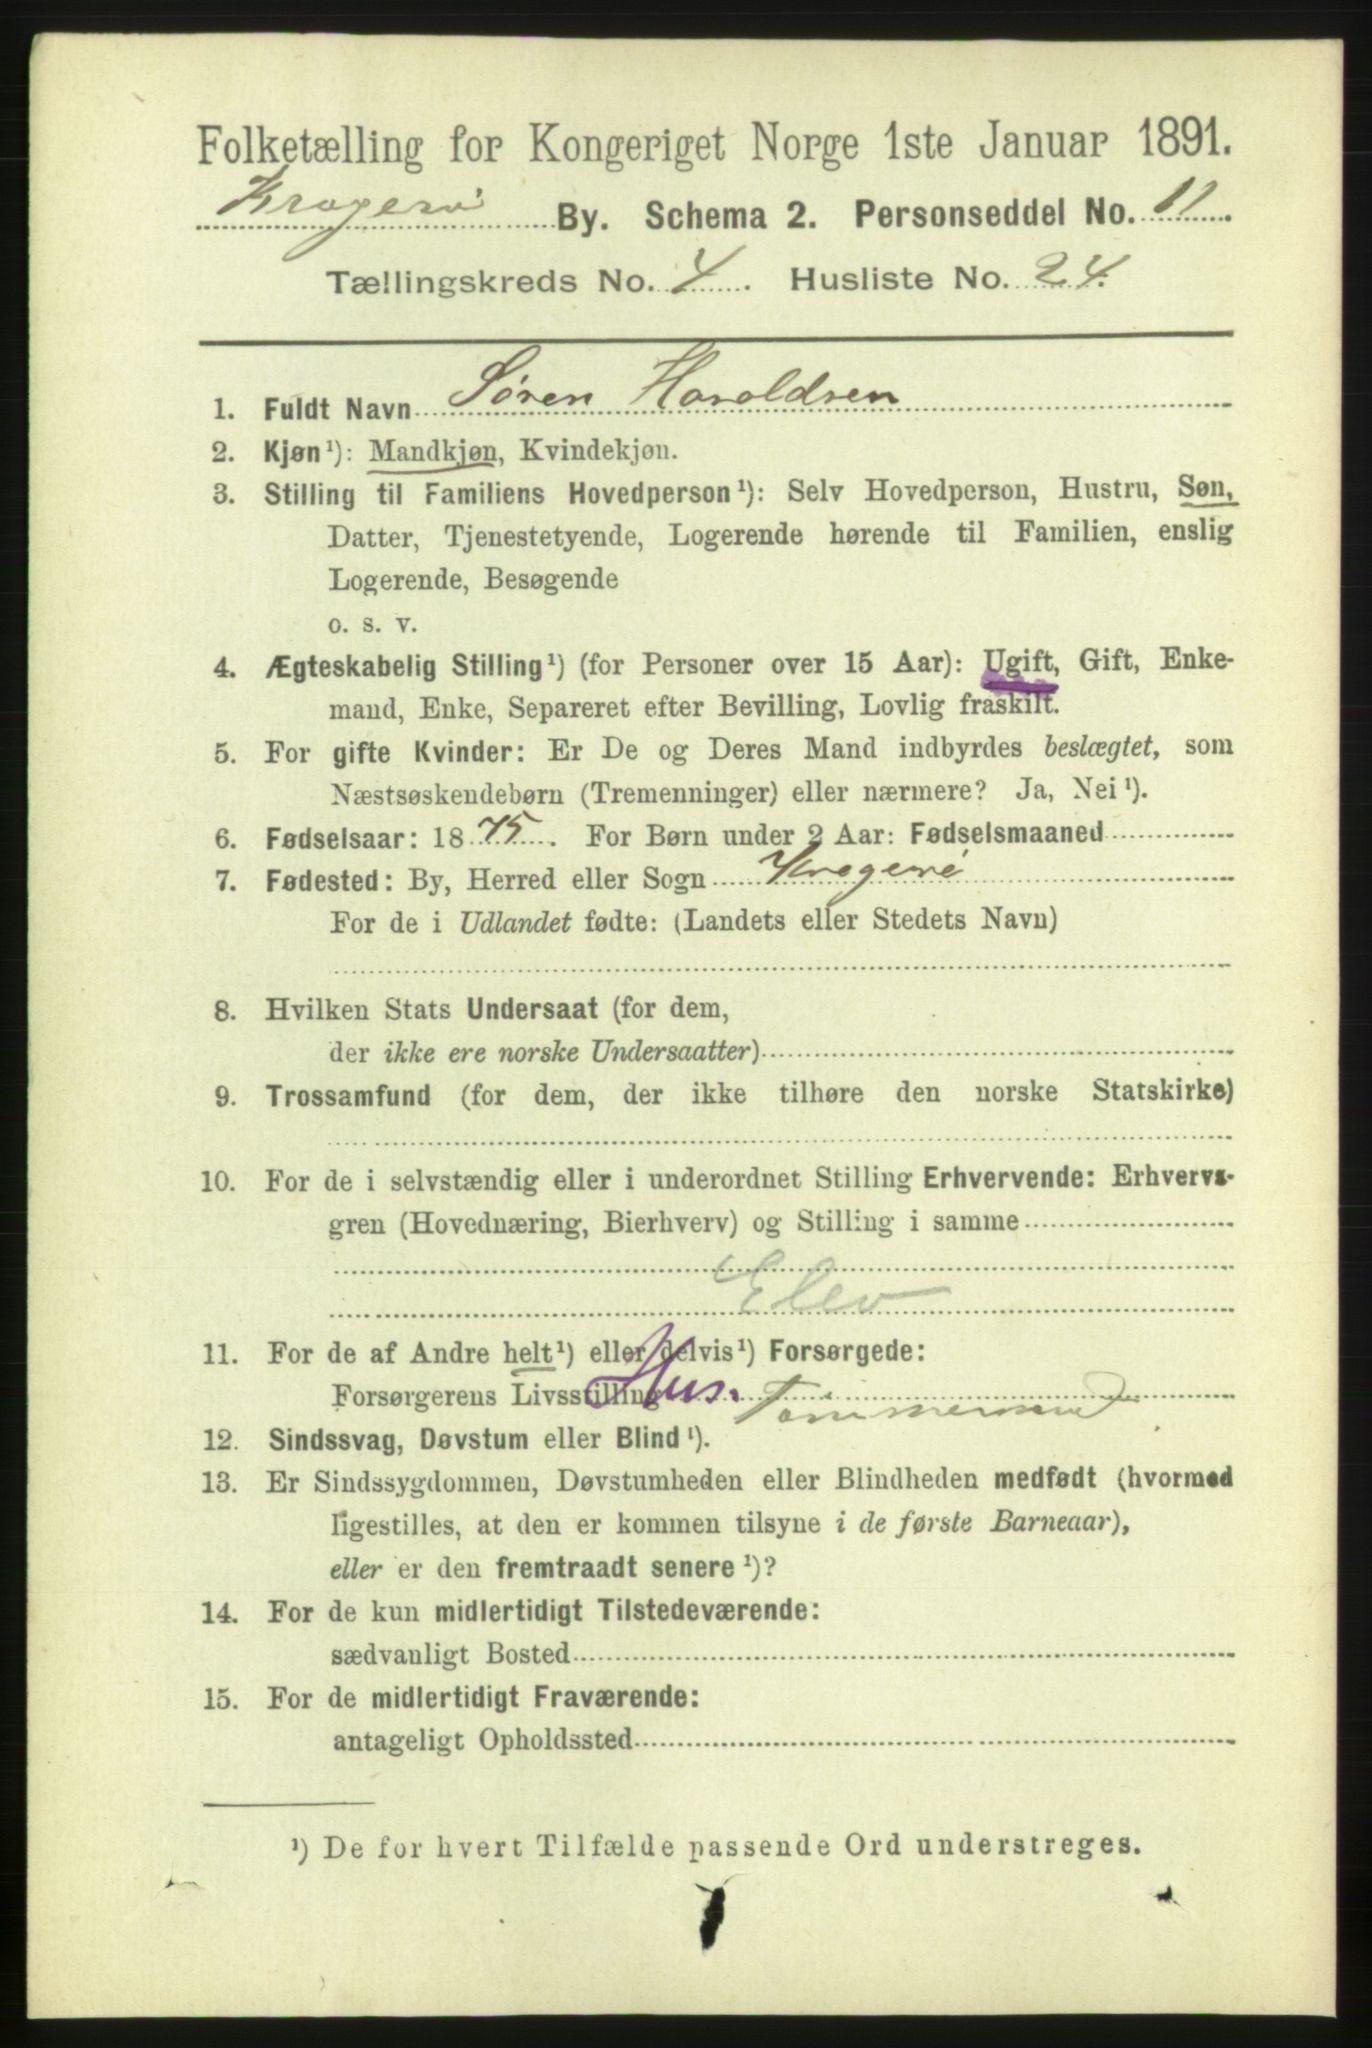 Folketælling for Kongeriget Norge 1ste Januar 1891.
Kragerø By. Schema 2. Personseddel No. 11.
Tællingskreds No. 4. Husliste No. 24.
1. Fuldt Navn Søren Haraldsen
2. Kjøn¹): Mandkjøn, Kvindekjøn.
3. Stilling til Familiens Hovedperson¹): Selv Hovedperson, Hustru, Søn,
Datter, Tjenestetyende, Logerende hørende til Familien, enslig
Logerende, Besøgende
o. s. v.
4. Ægteskabelig Stilling¹) (for Personer over 15 Aar): Ugift, Gift, Enke-
mand, Enke, Separeret efter Bevilling, Lovlig fraskilt.
5. For gifte Kvinder: Er De og Deres Mand indbyrdes beslægtet, som
Næstsøskendebørn (Tremenninger) eller nærmere? Ja, Nei¹).
6. Fødselsaar: 1875. For Børn under 2 Aar: Fødselsmaaned
7. Fødested: By, Herred eller Sogn Kragerø
For de i Udlandet fødte: (Landets eller Stedets Navn)
8. Hvilken Stats Undersaat (for dem,
der ikke ere norske Undersaatter)
9. Trossamfund (for dem, der ikke tilhøre den norske Statskirke)
10. For de i selvstændig eller i underordnet Stilling Erhvervende: Erhvervs-
gren (Hovednæring, Bierhverv) og Stilling i samme
Elev
11. For de af Andre helt¹) eller delvis¹) Forsørgede:
Forsørgerens Livsstilling Hus. Tømmermand
12. Sindssvag, Døvstum eller Blind¹).
13. Er Sindssygdommen, Døvstumheden eller Blindheden medfødt (hvormed
ligestilles, at den er kommen tilsyne i de første Barneaar),
eller er den fremtraadt senere¹)?
14. For de kun midlertidigt Tilstedeværende:
sædvanligt Bosted
15. For de midlertidigt Fraværende:
antageligt Opholdssted
¹) De for hvert Tilfælde passende Ord understreges.